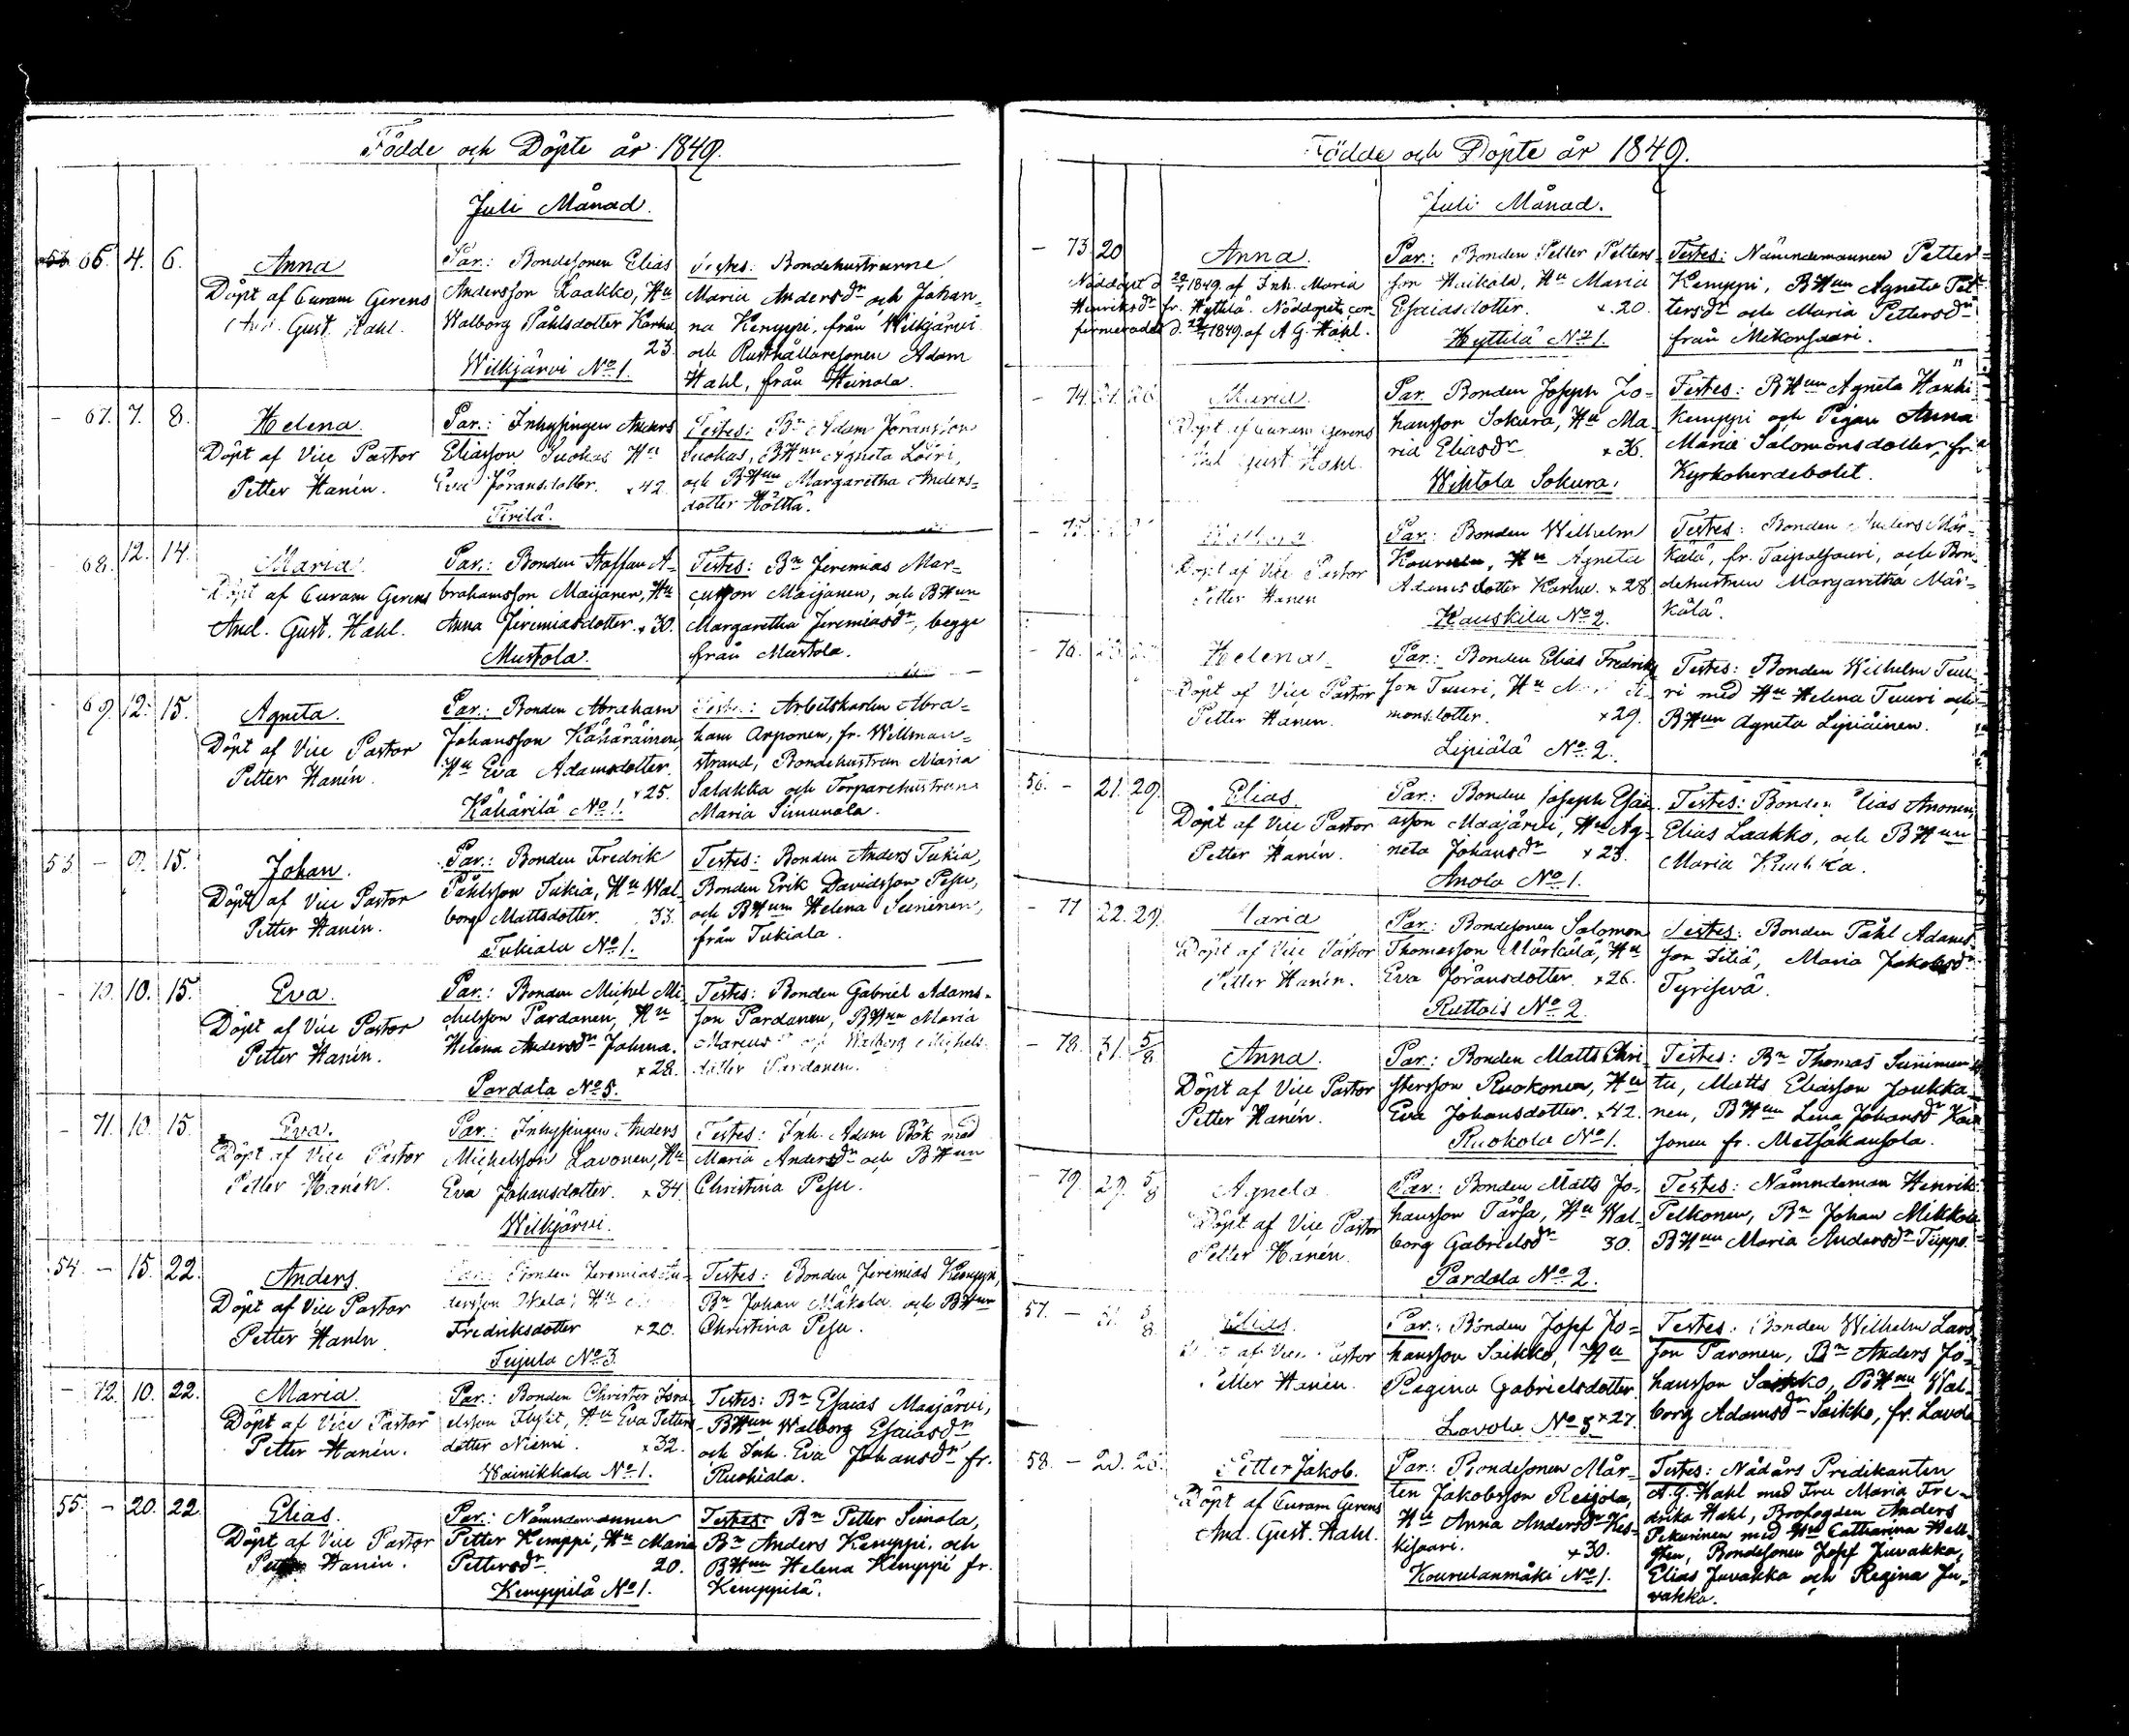 Födde och Döpte år 1849.
Juli Månad.
66. 4. 6.
Anna
Döpt af Curam Gerens
And. Gust. Hahl.
Par.: Bondesonen Elias
Andersson Laakko, Hu
Walborg Påhlsdotter Karhu
23.
Wilkjärvi No 1.
Testes: Bondehustrurne
Maria Andersdr och Johan-
na Kemppi, från Wilkjärvi
och Rusthållaresonen Adam
Hahl, från Heinola.
- 67. 7. 8.
Helena
Döpt af Vice Pastor
Petter Hanén.
Par.: Inhysingen Anders
Eliasson Suokas Hu
Eva Jöransdotter. x 42.
Tirilä.
Testes: Bn Adam Jöransson
Suokas, BHun Agneta Loiri,
och BHun Margaretha Anders-
dotter Hölttä.
68. 12. 14.
Maria
Döpt af Curam Gerens
And. Gust. Hahl.
Par.: Bonden Staffan A-
brahamsson Maijanen, Hu
Anna Jeremiasdotter. x 30.
Mustola.
Testes: Bn Jeremias Mar-
cusson Maijanen, och BHun
Margaretha Jeremiasdr, begge
från Mustola.
- 69. 12. 15.
Agneta.
Döpt af Vice Pastor
Petter Hanén.
Par.: Bonden Abraham
Johansson Kähäräinen,
Hu Eva Adamsdotter.
x 25.
Kähärilä No 1.
Testes: Arbetskarlen Abra-
ham Arponen, fr. Willman-
strand, Bondehustrun Maria
Salakka och Torparehustrun
Maria Simunala.
53. - 9. 15.
Johan.
Döpt af Vice Pastor
Petter Hanén.
Par.: Bonden Fredrik
Påhlsson Tukia, Hu Wal-
borg Mattsdotter. 33.
Tukiala No 1.
Testes: Bonden Anders Tukia,
Bonden Erik Davidsson Pesu,
och BHun Helena Suninen,
från Tukiala.
- 70. 10. 15.
Eva.
Döpt af Vice Pastor
Petter Hanén.
Par.: Bonden Michel Mi-
chelsson Pardanen, Hu
Helena Andersdr Johma.
x 28.
Pardala No 5.
Testes: Bonden Gabriel Adams-
son Pardanen, BHun Maria
Marcus och Walborg Michels-
dotter Pardanen.
- 71. 10. 15.
Eva.
Döpt af Vice Pastor
Petter Hanén.
Par.: Inhysingen Anders
Michelsson Lavonen, Hu
Eva Johansdotter. x 34.
Wilkjärvi.
Testes: Inh. Adam Bök med
Maria Andersdr och BHun
Christina Pesu.
54. - 15. 22.
Anders.
Döpt af Vice Pastor
Petter Hanén.
Par.: Bonden Jeremias An-
dersson Hu
Fredriksdotter x 20.
Tujula No 3.
Testes: Bonden Jeremias Kemppi,
Bn Johan Mäkelä och BHun
Christina Pesu.
- 72. 10. 22.
Maria
Döpt af Vice Pastor
Petter Hanén.
Par.: Bonden Christer Isra-
elsson Flygt, Hu Eva Petters-
dotter Niemi. x 32.
Wainikkala No 1.
Testes: Bn Esaias Maajärvi,
BHun Walborg Esaiasdr
och Inh. Eva Johansdr fr.
Ruohiala.
55. - 20. 22.
Elias.
Döpt af Vice Pastor
Petter Hanén.
Par.: Nämndemannen
Petter Kemppi, Hu Maria
Pettersdr 20.
Kemppilä No 1.
Testes: Bn Petter Simola,
Bn Anders Kemppi, och
BHun Helena Kemppi fr.
Kemppilä.
Födde och Döpte år 1849.
Juli Månad.
- 73. 20
Anna.
Nöddöpt d. 20/7 1849. af Inh. Maria
Henriksdr fr. Hyttilä. Nöddopets con-
firmerades d. 22/7 1849. af A. G. Hahl.
Par.: Bonden Petter Petters-
son Haikala, Hu Maria
Esaiasdotter. x. 20.
Hyttilä No 1.
Testes: Nämndemannen Petter
Kemppi, BHun Agneta Pet-
tersdr och Maria Pettersdr
från Mikonsaari.
- 74. 21. 26.
Maria.
Döpt af Curam Gerens
And. Gust. Hahl.
Par. Bonden Joseph Jo-
hansson Sokura, Hu Ma-
ria Eliasdr x 36.
Wihtola Sokura.
Testes: BHun Agneta
Kemppi och Pigan Anna
Maria Salomonsdotter, fr.
Kyrkoherdebolet.
- 75.
Döpt af Vice Pastor
Petter Hanén
Par.: Bonden Wilhelm
Kouvala, Hu Agneta
Adamsdotter Karhu. x 28.
Hauskila No 2.
Testes: Bonden Anders Mär-
kälä, fr. Taipalsaari, och Bon-
dehustrun Margaretha Mär-
kälä.
- 76.
Helena
Döpt af Vice Pastor
Petter Hanén.
Par.: Bonden Elias Fredriks-
son Tuuri, Hu Si-
monsdotter. x 29.
Lipiälä No 2.
Testes: Bonden Wilhelm Tuu-
ri med Hu Helena Tuuri och
BHun Agneta Lipiäinen.
56. - 21. 29.
Elias.
Döpt af Vice Pastor
Petter Hanén.
Par.: Bonden Joseph Esai-
asson Maajärvi, Hu Ag-
neta Johansdr x 23.
Anola No 1.
Testes: Bonden Elias Anonen,
Elias Laakko, och BHun
Maria
- 77. 22. 29.
Maria
Döpt af Vice Pastor
Petter Hanén.
Par.: Bondesonen Salomon
Thomasson Märkälä, Hu
Eva Jöransdotter. x 26.
Ruttois No 2.
Testes: Bonden Påhl Adams-
son Siliä, Maria Jakobsdr
Tyrisevä.
- 78. 31. 5/8
Anna.
Döpt af Vice Pastor
Petter Hanén.
Par.: Bonden Matts Chri-
stersson Ruokonen, Hu
Eva Johansdotter. x 42.
Ruokola No 1.
Testes: Bn Thomas Suninen
Matts Eliasson Joukka-
nen, BHun Lena Johansdr
sonen fr. Metsäkansola.
- 79. 29. 5/8
Agneta.
Döpt af Vice Pastor
Petter Hanén.
Par.: Bonden Matts Jo-
hansson Tärsä, Hu Wal-
borg Gabrielsdr 30.
Pardala No 2.
Testes: Nämndeman Henrik
Pelkonen, Bn Johan Mikkola
BHun Maria Andersdr Tuppo.
57. - 31. 5/8
Elias.
Döpt af Vice Pastor
Petter Hanén.
Par.: Bonden Josef Jo-
hansson Saikko, Hu
Regina Gabrielsdotter.
Lavola No 5. x 27.
Testes: Bonden Wilhelm Lars-
son Paronen, Bn Anders Jo-
hansson Saikko, BHun Wal-
borg Adamsdr Saikko, fr. Lavola
58. -
Petter Jakob.
Döpt af Curam Gerens
And. Gust. Hahl.
Par.: Bondesonen Mår-
ten Jakobsson Reijola,
Hu Anna Andersdr Kes-
kisaari.
x 30.
Kourulanmäki No 1.
Testes: Nådårs Predikanten
A. G. Hahl med Fru Maria Fre-
drika Hahl, Brofogden Anders
Pekurinen med Hu Catharina Hell-
sten, Bondesonen Josef Juvakka,
Elias Juvakka och Regina Ju-
vakka.